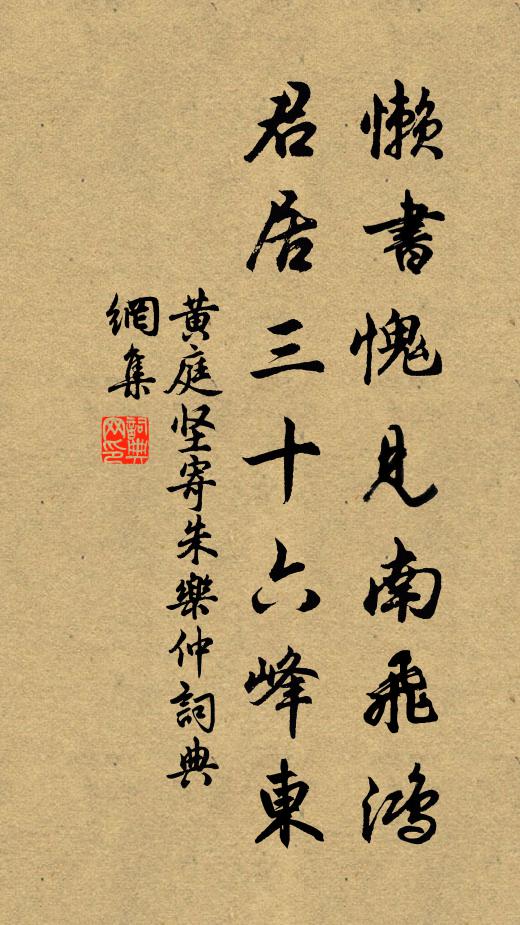 懒書愧見南飛鴻
君居三十六峰東
黄庭坚寄朱樂仲詞典
網集
詞典
网印